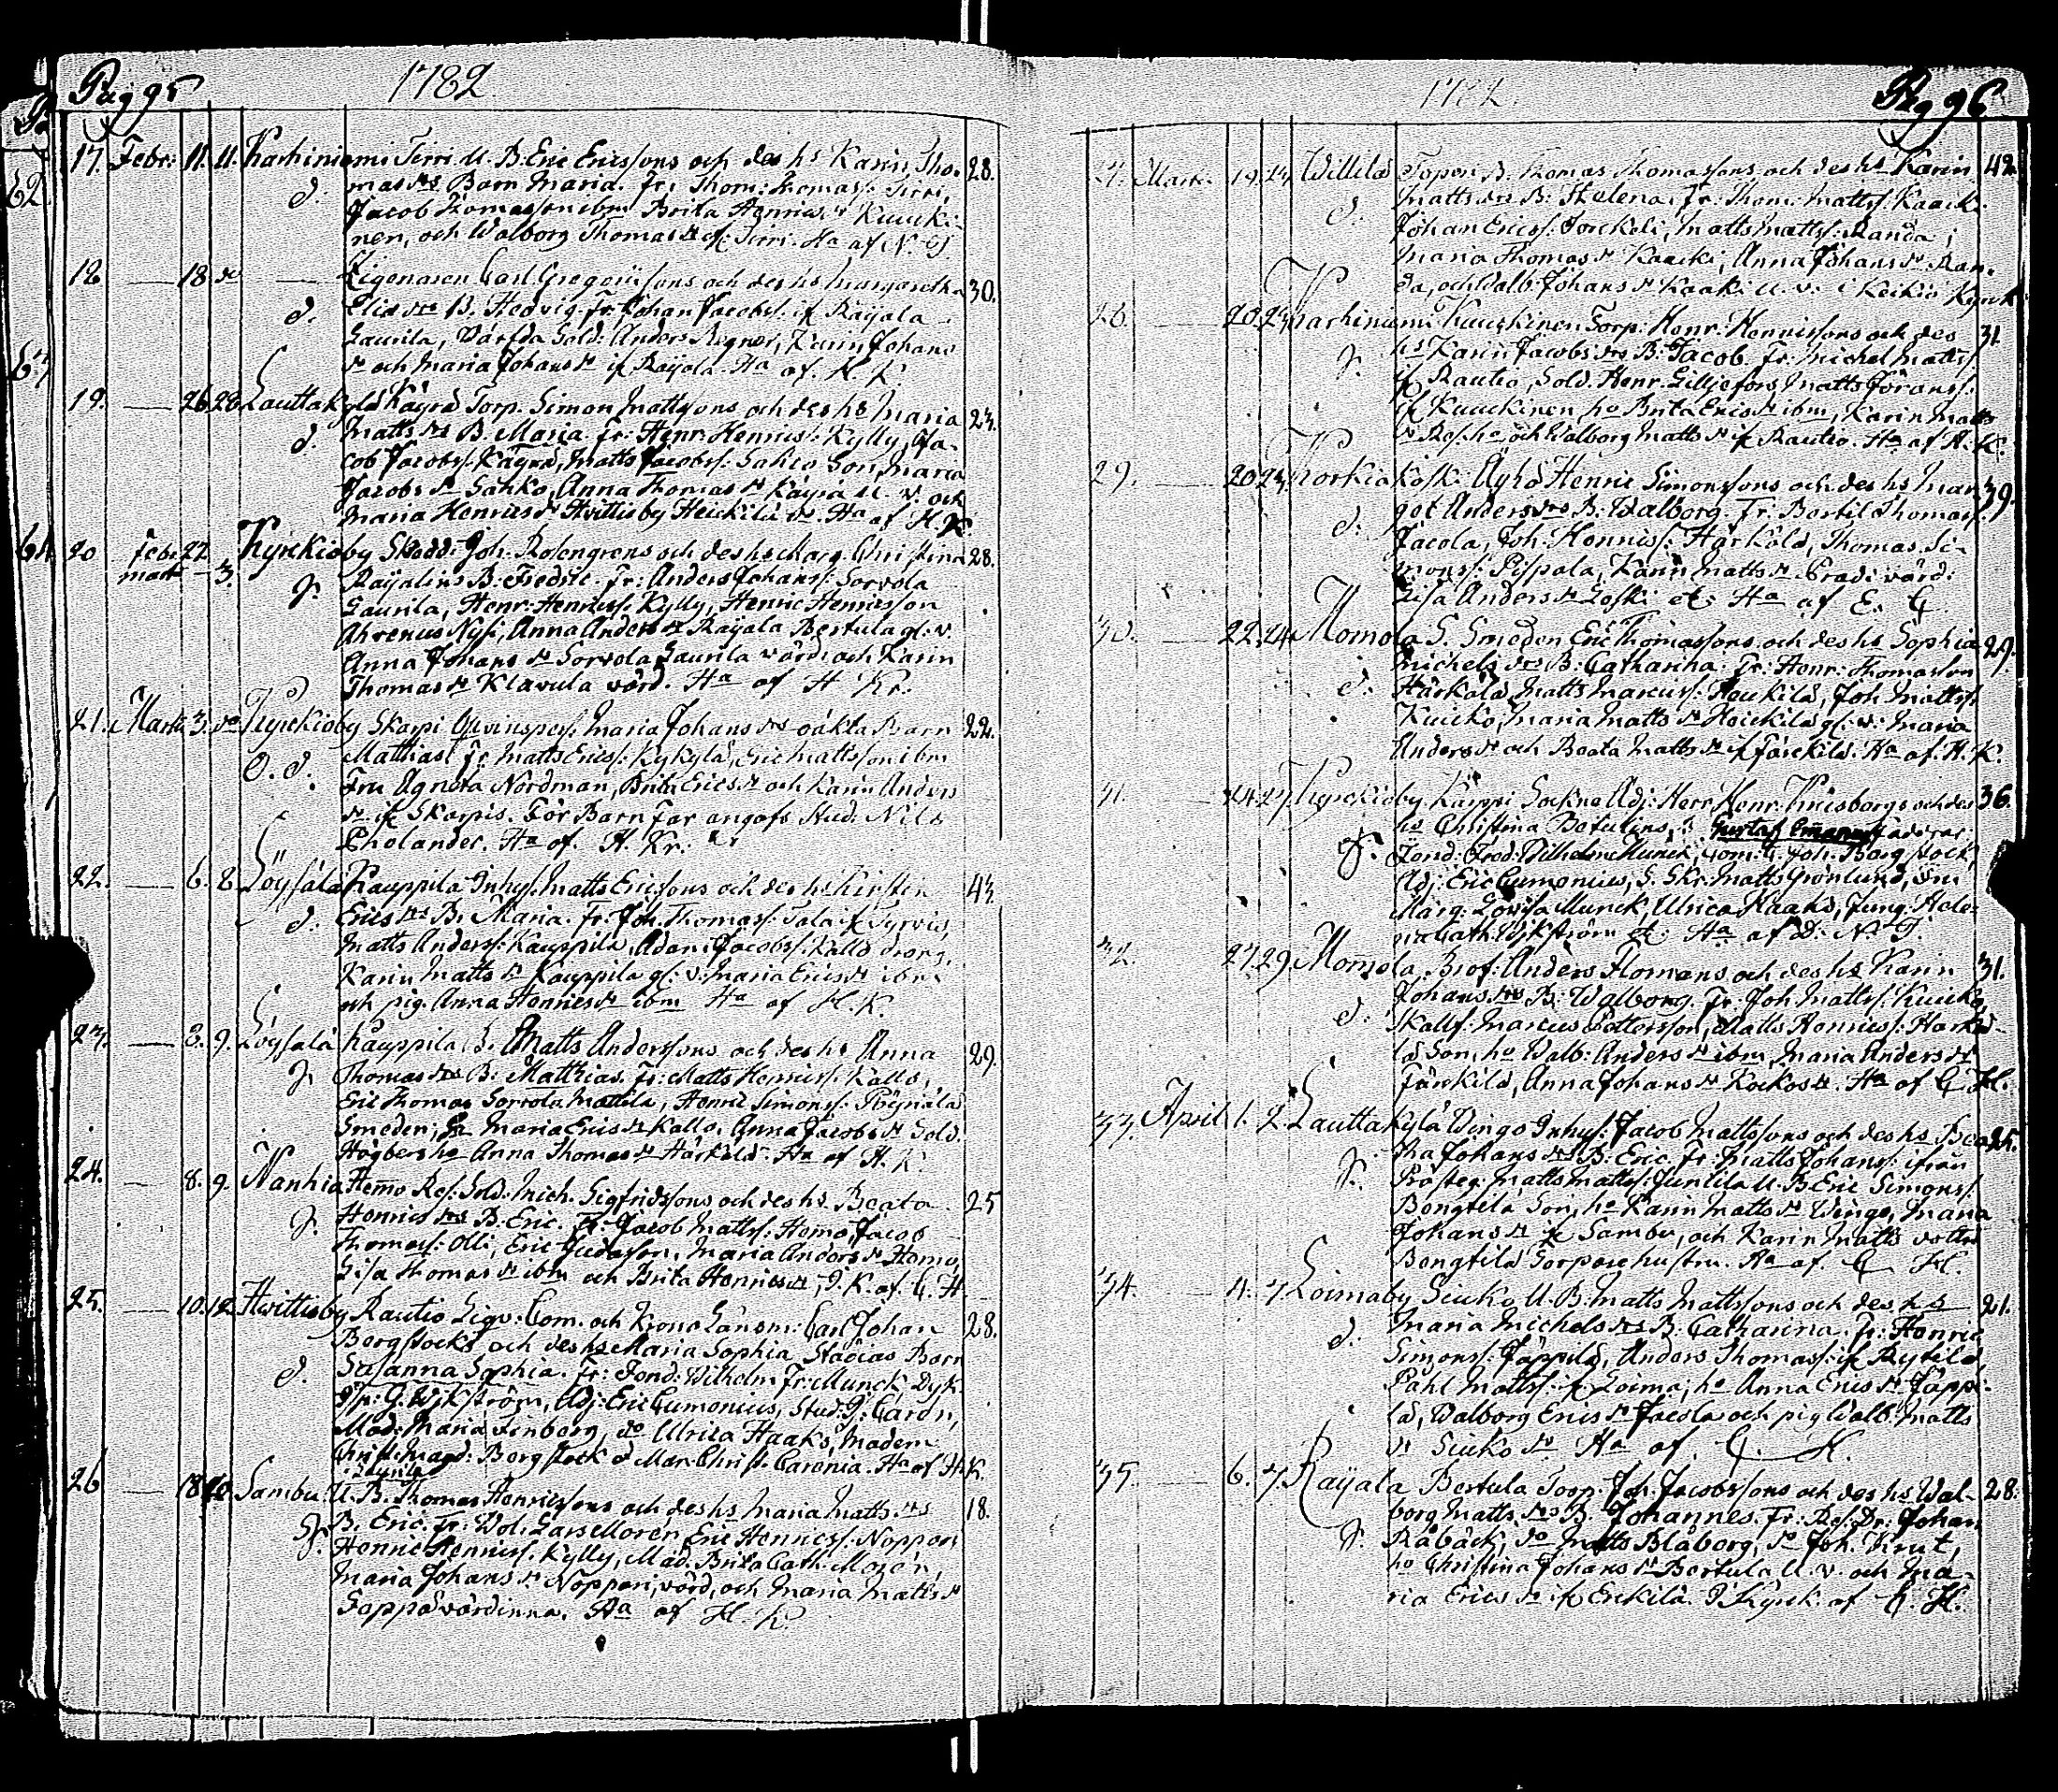 Pag 95
1782
17. Febr: 11. 11. Karhiniemi Tirri U. B. Eric Ericssons och des hs Karin Tho- 28.
d. mas drs Barn Maria. Fr: Thom: Thomas: Tirri,
Jacob Thomasson ibm Brita Henrics dr Kuucki-
nen, och Walborg Thomas dr if Tirri. Ha af N. T.
18 — 18 do — Ligonaren Carl Gregorissons och des hs Margaretha 30.
d. Elias drs B. Hedvig. Fr: Johan Jacobss: if Räjjala
Gaurila, Värfda Sold: Anders Regner, Karin Johans
dr och Maria Johans dr if Räjola. Ha af. H. K.
19. — 26 28 Lauttakylä Käyrä Torp. Simon Mattssons och des hs Maria 23.
d. Matts drs B. Maria. Fr: Henr: Henricss: Kylly, Ja-
cob Jacobss: Käyrä, Matts Jacobss: Sahko Son, Maria
Jacobs dr Sahko, Anna Thomas dr Käyrä U. v. och
Maria Henrics dr Hvittisby Heickilä vä. Ha af H. K.
20 Febr 27 Kyrckioby Skodd: Joh. Rosengrens och des hs Marg. Christina 28.
Mart — 3.
g. Rajalins B: Fredric. Fr: Anders Johanss: Sorvola
Gaurila, Henr: Henricss: Kylly, Henric Henricsson
Ahrenius Nyss, Anna Anders dr Räjala Bertula gl: v.
Anna Johans dr Sorvola Gaurila värd: och Karin
Thomas dr Klavula värd. Ha af H Kr.
21. Mart. 3. do Kyrckioby Skarpi Qvinspers: Maria Johans drs oäkta Barn 22.
O. d. Matthias Fr: Matts Ericss: Kykylä, Eric Mattsson ibm
Fru Agneta Nordman, Brita Erics dr och Karin Anders
dr if Skarpis. För Barn Far angafs Stud. Nils
Pholander. Ha af. H. Kr.
22. — 6. 8. Löysälä Kauppila Inhys. Matts Ericssons och des hs Kirstin 43.
d. Erics drs B. Maria. Fr: Joh. Thomass: Tala if Tyrvis,
Matts Anderss: Kauppila, Adam Jacobss: Kallo dräng,
Karin Matts dr Kauppila gl: v: Maria Erics dr ibm
och pig. Anna Henrics dr ibm Ha af H. K.
23. — 8. 9. Löysälä Kauppila B. Matts Anderssons och des hs Anna 29.
g. Thomas drs B: Matthias. Fr: Matts Henricss: Kallo,
Eric Thomas Sorvola Mattila, Henric Simonss: Pöynälä
Smeden; Maria Erics dr Kallo, Anna Jacobs dr Sold.
Högbergs ho Anna Thomas dr Härkälä. Ha af H. K.
24. — 8. 9. Nanhia Hemo Res: Sold. Mich. Sigfridssons och des hs Beata 25
g. Henrics drs B. Eric. Fr: Jacob Mattss: Hemo, Jacob
Thomass: Olli, Eric Judasson, Maria Anders dr Hemo,
Lisa Thomas dr ibm och Brita Henrics dr, I. K. af. C. H.
25. — 10. 12 Hvittisby Rautio Liqv: Com. och Krono Länsm: Carl Johan 28.
Borgstocks och des hs Maria Sophia Stacias Barn
d. Susanna Sophia. Fr: Fond: Wilhelm Fr: Munck Dyk.
G. Wykström, Adj: Eric Cumonius, Stud: J: Caron,
Mad: Maria Finborg, do Ulrica Haaks, Madem
Christ. Magd: Borgstock o Mar: Christ. Caronia. Ha af H. K.
26 — 18 20. Sambu. U. B. Thomas Henricssons och des hs Maria Matts drs 18.
g. B. Eric. Fr: Vol. Lars Moren, Eric Henricss: Noppari
Henric Henricss. Kylly, Mad. Brita Cath. Moren,
Maria Johans dr Noppari, värd, och Maria Matts dr
Soppä värdinna. Ha af H. K.
1782.
Pag 96
27. Mart: 19. 24 Willilä Topon B. Thomas Thomassons och des hs Karin 42.
d. Matts drs B: Helena. Fr: Thom: Mattss: Kaacki
Johan Ericss: Torckeli, Matts Mattss: Randa;
Maria Thomas dr Kaacki, Anna Johans dr Ran-
da, och Walb: Johans dr Kaaki U. v: i Keikiö Kyrck
28. — 20. 24 Karhiniemi Kuuckinen Torp: Henr: Henricssons och des 31.
g. hs Karin Jacobs drs B: Jacob. Fr: Michel Mattss
if Rautio, Sold. Henr. Gilljefors, Matts Jöranss:
if Kuuckinen, ho Brita Erics dr ibm, Karin Matts
dr Res. ho och Walborg Matts dr if Rautio. Ha af H. K.
29. — 20 24 Korkiakosk: Äyhö Henric Simonssons och des hs Mar- 39.
d. get Anders drs B: Walborg. Fr: Bertil Thomass:
Jacola, Joh: Henricss: Härkälä, Thomas Si-
monss: Pispala, Karin Matts dr Pradi värd:
Lisa Anders dr Loski etc: Ha af E. C.
30. — 22. 24 Momola S. Smeden Eric Thomassons och des hs Sophia 29.
d. Michels drs B: Catharina. Fr: Henr: Thomasson
Härkälä, Matts Marcuss: Heickilä, Joh: Mattss
Kuicko, Maria Matts dr Heickilä gl: v: Maria
Anders dr och Beata Matts dr if Färckilä. Ha af. H. K.
31. — 24. 27. Kyrckioby. Käppi Sockne Adj: Herr Henr: Kniesborgs och des 36.
hs Christina Betulins, B. Gustaf Emanuel Faddrar:
g. Fond: Fred: Wilhelm Munck, Com: C. Joh: Borgstock,
Adj: Eric Cumonius, S. Skr: Matts Grönlund, Fru
Marg: Lovisa Munck, Ulrica Haaks, Jung: Hele-
na Cath: Wykström etc: Ha af D: N: T.
32. — 27. 29. Momola, Prof: Anders Homans och des hs Karin 31.
d. Johans drs B: Walborg. Fr: Joh: Mattss: Kuicko
Skallf: Marcus Pettersson, Matts Henricss: Härkä-
lä Son, ho Walb: Anders dr ibm, Maria Anders dr
Färkilä, Anna Johans dr Kockos dr. Ha af C H.
33. April 1. 2. Lauttakylä Wingo Inhys: Jacob Mattssons och des hs Bea- 25.
g. tha Johans drs B: Eric. Fr: Matts Johanss: ifrån
Prosteg: Matts Mattss: Juntila U. B. Eric Simonss:
Bengtilä Son, ho Karin Matts dr Wingo, Maria
Johans dr if Sambu, och Karin Matts dotter
Bengtilä Torpare hustru. Ha af. C H.
34. — 4. 7. Loimaby Siuko U. B: Matts Mattssons och des hs 21.
d. Maria Michels drs B: Catharina. Fr: Henric
Simonss: Jäppilä, Anders Thomass: if Rytilä,
Pahl Mattss: if Loima; ho Anna Erics dr Jäppi-
lä, Walborg Erics dr Jacola och pig Walb: Matts
dr Siuko dr Ha af C. H.
35. — 6. 7. Räjala Bertula Torp: Joh. Jacobssons och des hs Wal- 28.
borg Matts drs B. Johannes. Fr: Res: Dr: Johan
g. Råbäck, do Matts Blåborg, do Joh. Krut,
ho Christina Johans dr Bertula U. v. och Ma-
ria Erics dr if Erckilä. I Kyrck: af C. H.